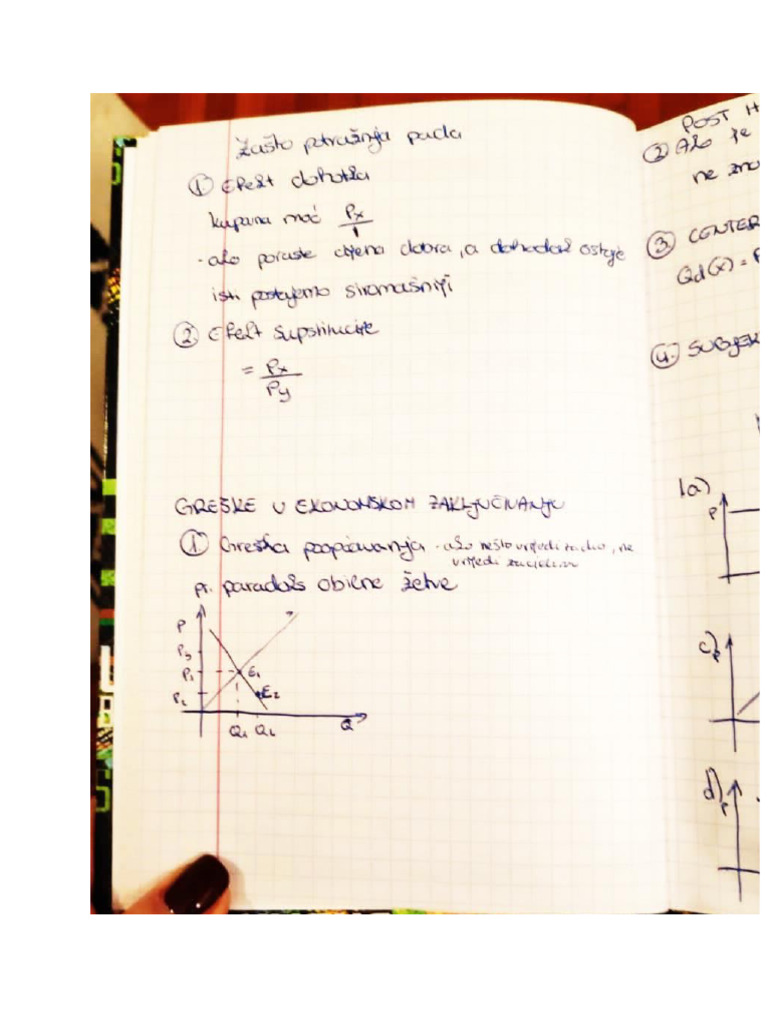 Zašto potražnja pada
① Efekt dohotka
kupovna moć Px/1
- ako poraste cijena dobra, a dohodak ostaje
isti postajemo siromašniji
② Efekt supstitucije
= Px/Py
GREŠKE U EKONOMSKOM ZAKLJUČIVANJU
① Greška poopćavanja - ako nešto vrijedi za dio, ne
vrijedi za cjelinu
pr. paradoks obilne žetve
P
Py
P1 E1
P2 E2
Q1 Q2 Q
POST H
② Ako je
ne zna
③ CENTER
Qd(x) = P
④ SUBJEK
1a)
P
c) P
d) P